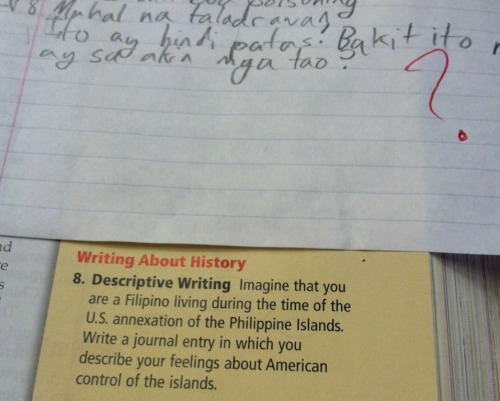 8. Mahal na taladrawan
Ito ay hindi patas. Bakit ito
ay sa akin mga tao?
?
Writing About History
8. Descriptive Writing Imagine that you
are a Filipino living during the time of the
U.S. annexation of the Philippine Islands.
Write a journal entry in which you
describe your feelings about American
control of the islands.